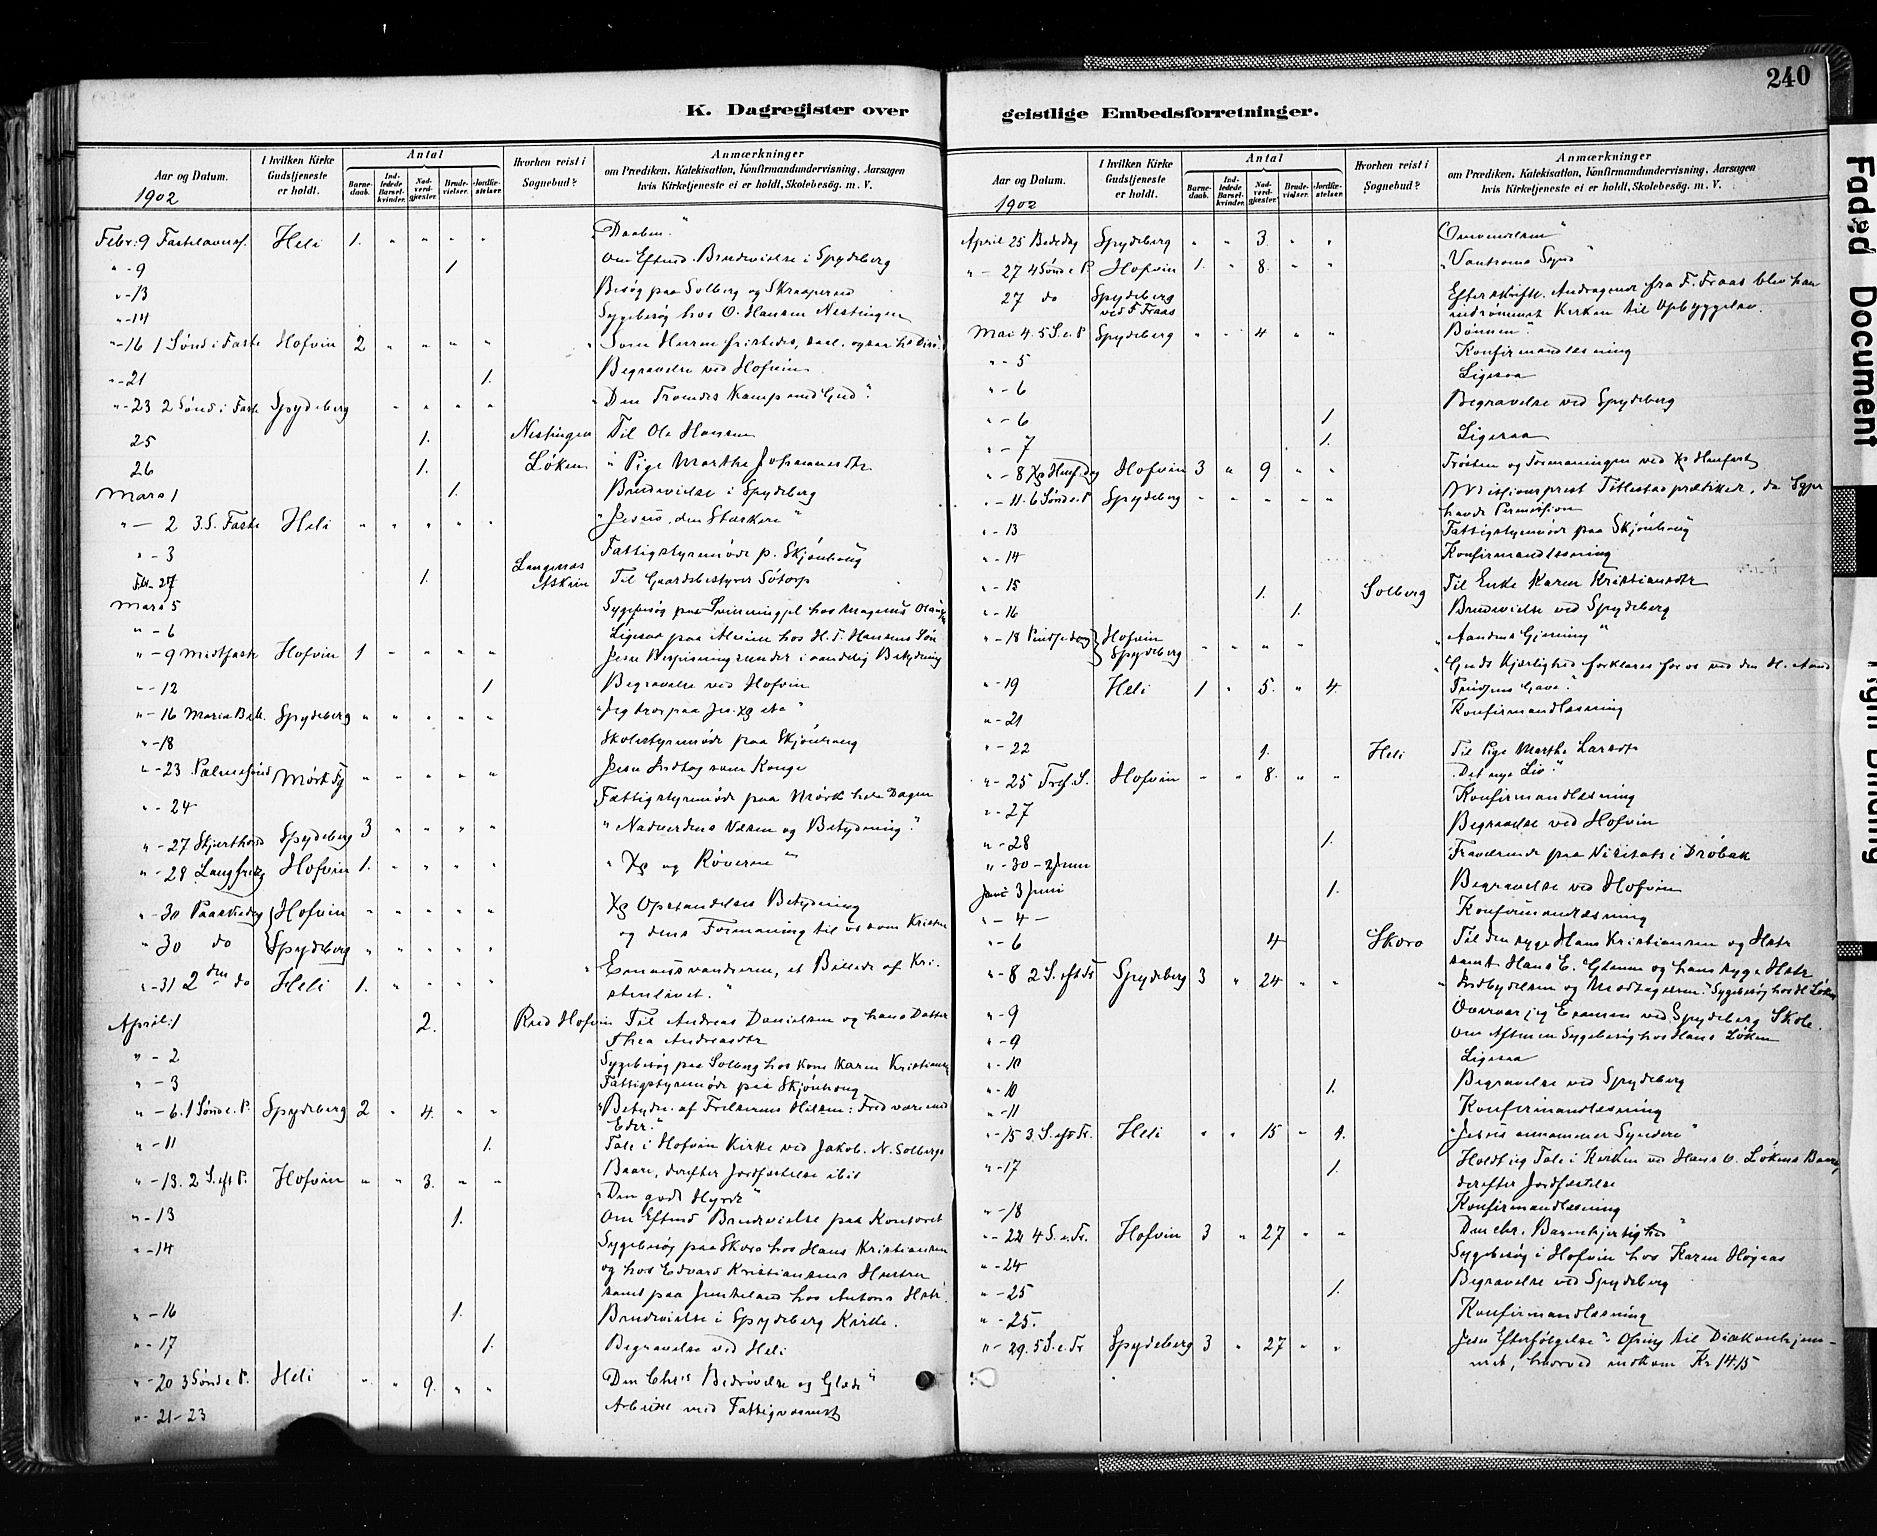 240
K. Dagregister over
geistlige Embedsforretninger.
Aar og Datum.
1902
I hvilken Kirke Gudstjeneste er holdt.
Antal
Barnedaab.
Indledede Barselkvinder.
Nadverdgjæster.
Brudevielser.
Jordfæstelser.
Hvorhen reist i Sognebud?
Anmærkninger
om Prædiken, Katekisation, Konfirmandundervisning, Aarsagen
hvis Kirketjeneste ei er holdt, Skolebesøg. m. V.
Febr: 9 Fastelavns. Heli 1. " " " " "Daaben."
" - 9 1 Om Eftmd. Brudevielse i Spydeberg
" - 13 Besøg paa Solberg og
" - 14 Sygebesøg hos O. Hansen Nestingen
" - 16 1 Sønd i Faste Hofvin 2 " " " " "Som Herren fristedes, saal. ogsaa hs
" - 21 1. Begravelse ved Hofvin
" - 23 2 Sønd i Faste Spydeberg " " " " "Den Troendes Kamp med Gud".
25 1. Nestingen Til Ole Hansen
26 1. Løken " Pige Marthe Johannesdtr
Mars 1 1. Brudevielse i Spydeberg
" - 2 3.S. Faste Heli " " " " " "Jesus, den Stærkere"
" - 3 Fattigstyremøde p. Skjønhaug
Feb. 27 1. Langenæs Askim Til Gaardsbestyrer Sótorp
Mars 5 Sygebesøg paa hos Magnus
" - 6 Ligesaa paa hos H. T. Hansens Søn
" - 9 Midtfaste Hofvin 1 " " " " Jesu Bespisningsunder i aandelig Betydning
" - 12 1 Begravelse ved Hofvin
" - 16 Maria Beb. Spydeberg " " " " " "Jeg tror paa Jes. Xp etc"
" - 18 Skolestyremøde paa Skjønhaug
" - 23 Palmesønd Mørk Fg " " " " " Jesu Indtog som Konge
" - 24 Fattigstyremøde paa Mørk hele Dagen
" - 27 Skjærthorsd Spydeberg 3 " " " " "Nadverdens Væsen og Betydning."
" - 28 Langfredg Hofvin 1. " " " " "Xp og Røveren"
" - 30 Paaskedag Hofvin " " " " " Xp Opstandelses Betydning
" 30 do Spydeberg " " " " " og dens Formaning til os som Kristne
" - 31 2 den do Heli 1. " " " " "Emausvandreren, et Billede af Kri-
stenlivet."
April 1 2. Rud Hofvin Til Andreas Danielsen og hans Datter
Thea Andreasdtr
" - 2 Sygebesøg paa Solberg hos Kone Karen Kristiansen
" - 3 Fattigstyremøde paa Skjønhaug
" - 6. 1 Sønd e. P. Spydeberg 2 " 4. " " "Betydn. af Frelserens Hilsen: Fred være med
Eder."
" - 11 1. Tale i Hofvin Kirke ved Jakob N. Solbergs
Baare, derefter Jordfæstelse ibid
" - 13. 2 S. eft P. Hofvin " " 3. " " "Den gode Hyrde"
" - 13 1. Om Eftmd Brudevielse paa Kontoret
" - 14 Sygebesøg paa Skoro hos Hans Kristiansen
og hos Edvard Kristiansens Hustru
samt paa hos Antons Hstr.
" - 16 1. Brudevielse i Spydeberg Kirke.
" - 17 1. Begravelse ved Heli
" - 20 3 Sønd e. P. Heli " " 9. " " "Den Chr's Bedrøvelse og Glæde"
" - 21 - 23 Arbeide med Fattigvæsenet
Aar og Datum.
1902
I hvilken Kirke Gudstjeneste er holdt.
Antal
Barnedaab.
Indledede Barselkvinder.
Nadverdgjæster.
Brudevielser.
Jordfæstelser.
Hvorhen reist i Sognebud?
Anmærkninger
om Prædiken, Katekisation, Konfirmandundervisning, Aarsagen
hvis Kirketjeneste ei er holdt, Skolebesøg. m. V.
April 25 Bededag Spydeberg " " 3. " " "Omvendelsen"
" - 27 4 Sønd e P. Hofvin 1. " 8. " " "Vantroens Synd"
27 do Spydeberg ved F. Fraas Efter skriftl. Andragende fra F. Fraas blev han
indrømmet Kirken til Opbyggelse.
Mai 4. 5 S. e. P Spydeberg " " 4 " " Bønnen".
" - 5 Konfirmandlæsning
" - 6 Ligesaa
" - 6 1. Begravelse ved Spydeberg
" - 7 1. Ligesaa
" - 8 Xp Himf. dag Hofvin 3 " 9 " " Trøsten og Formaningen ved Xp Himfart
" - 11. 6 Sønd e. P Spydeberg " " " " " Missionsprest Titlestad prædikede, da Sgpr
havde Permission
" - 13 Fattigstyremøde paa Skjønhaug
" - 14 Konfirmandlæsning
" - 15 1. Solberg Til Enke Karen Kristiansdtr
" - 16 1. Brudevielse ved Spydeberg
" - 18 Pindsedag Hofvin Spydeberg " " " " "Aandens Gjerning"
"Guds Kjærlighed forklares for os ved den H. Aand
" - 19 Heli 1 " 5. " 4. Pindsens Gave."
" - 21 Konfirmandlæsning
" - 22 1. Heli Til Pige Marthe Larsdtr
" - 25 Tref. S. Hofvin " " 8. " " "Det nye Liv."
" - 27 Konfirmandlæsning
" - 28 1. Begravelse ved Hofvin
" - 30 - 2 Juni Fraværende paa Visitats i Drøbak
3 Juni 1. Begravelse ved Hofvin
" - 4 - Konfirmandlæsning
" - 6 4 Skoro Til den syge Hans Kristiansen og Hstr
samt Hans E. Glenne og hans syge Hstr
" - 8 2 S. eft Tr Spydeberg 3 " 24 " " "Indbydelsen og Modtagelsen." Sygebesøg hos H. Løken
" - 9 Overvar jeg Examen ved Spydeberg Skole.
" - 9 Om Aftenen Sygebesøg hos Hans Løken
" - 10 Ligesaa
" - 10 1. Begravelse ved Spydeberg
" - 11 Konfirmandlæsning
" - 15 3. S. eft Tr. Heli " " 15 " 1. "Jesus annammer Syndere"
" - 17 1. Holdt jeg Tale i Kirken ved Hans O. Løkens Baare,
derefter Jordfæstelse
" - 18 Konfirmandlæsning
" - 22 4 S. e. Tr. Hofvin 3 " 27 " " Den chr. Barmhjertighed"
" - 24 Sygebesøg i Hofvin hos Karen Højaas
" - 25 1. Begravelse ved Spydeberg
" - 25. Konfirmandlæsning
" - 29. 5 S. e. Tr Spydeberg 3 " 27 " " Jesu Efterfølgelse". Ofring til Diakonhjem-
met, hvorved indkom Kr 14.15
Faded Document
Tight Binding